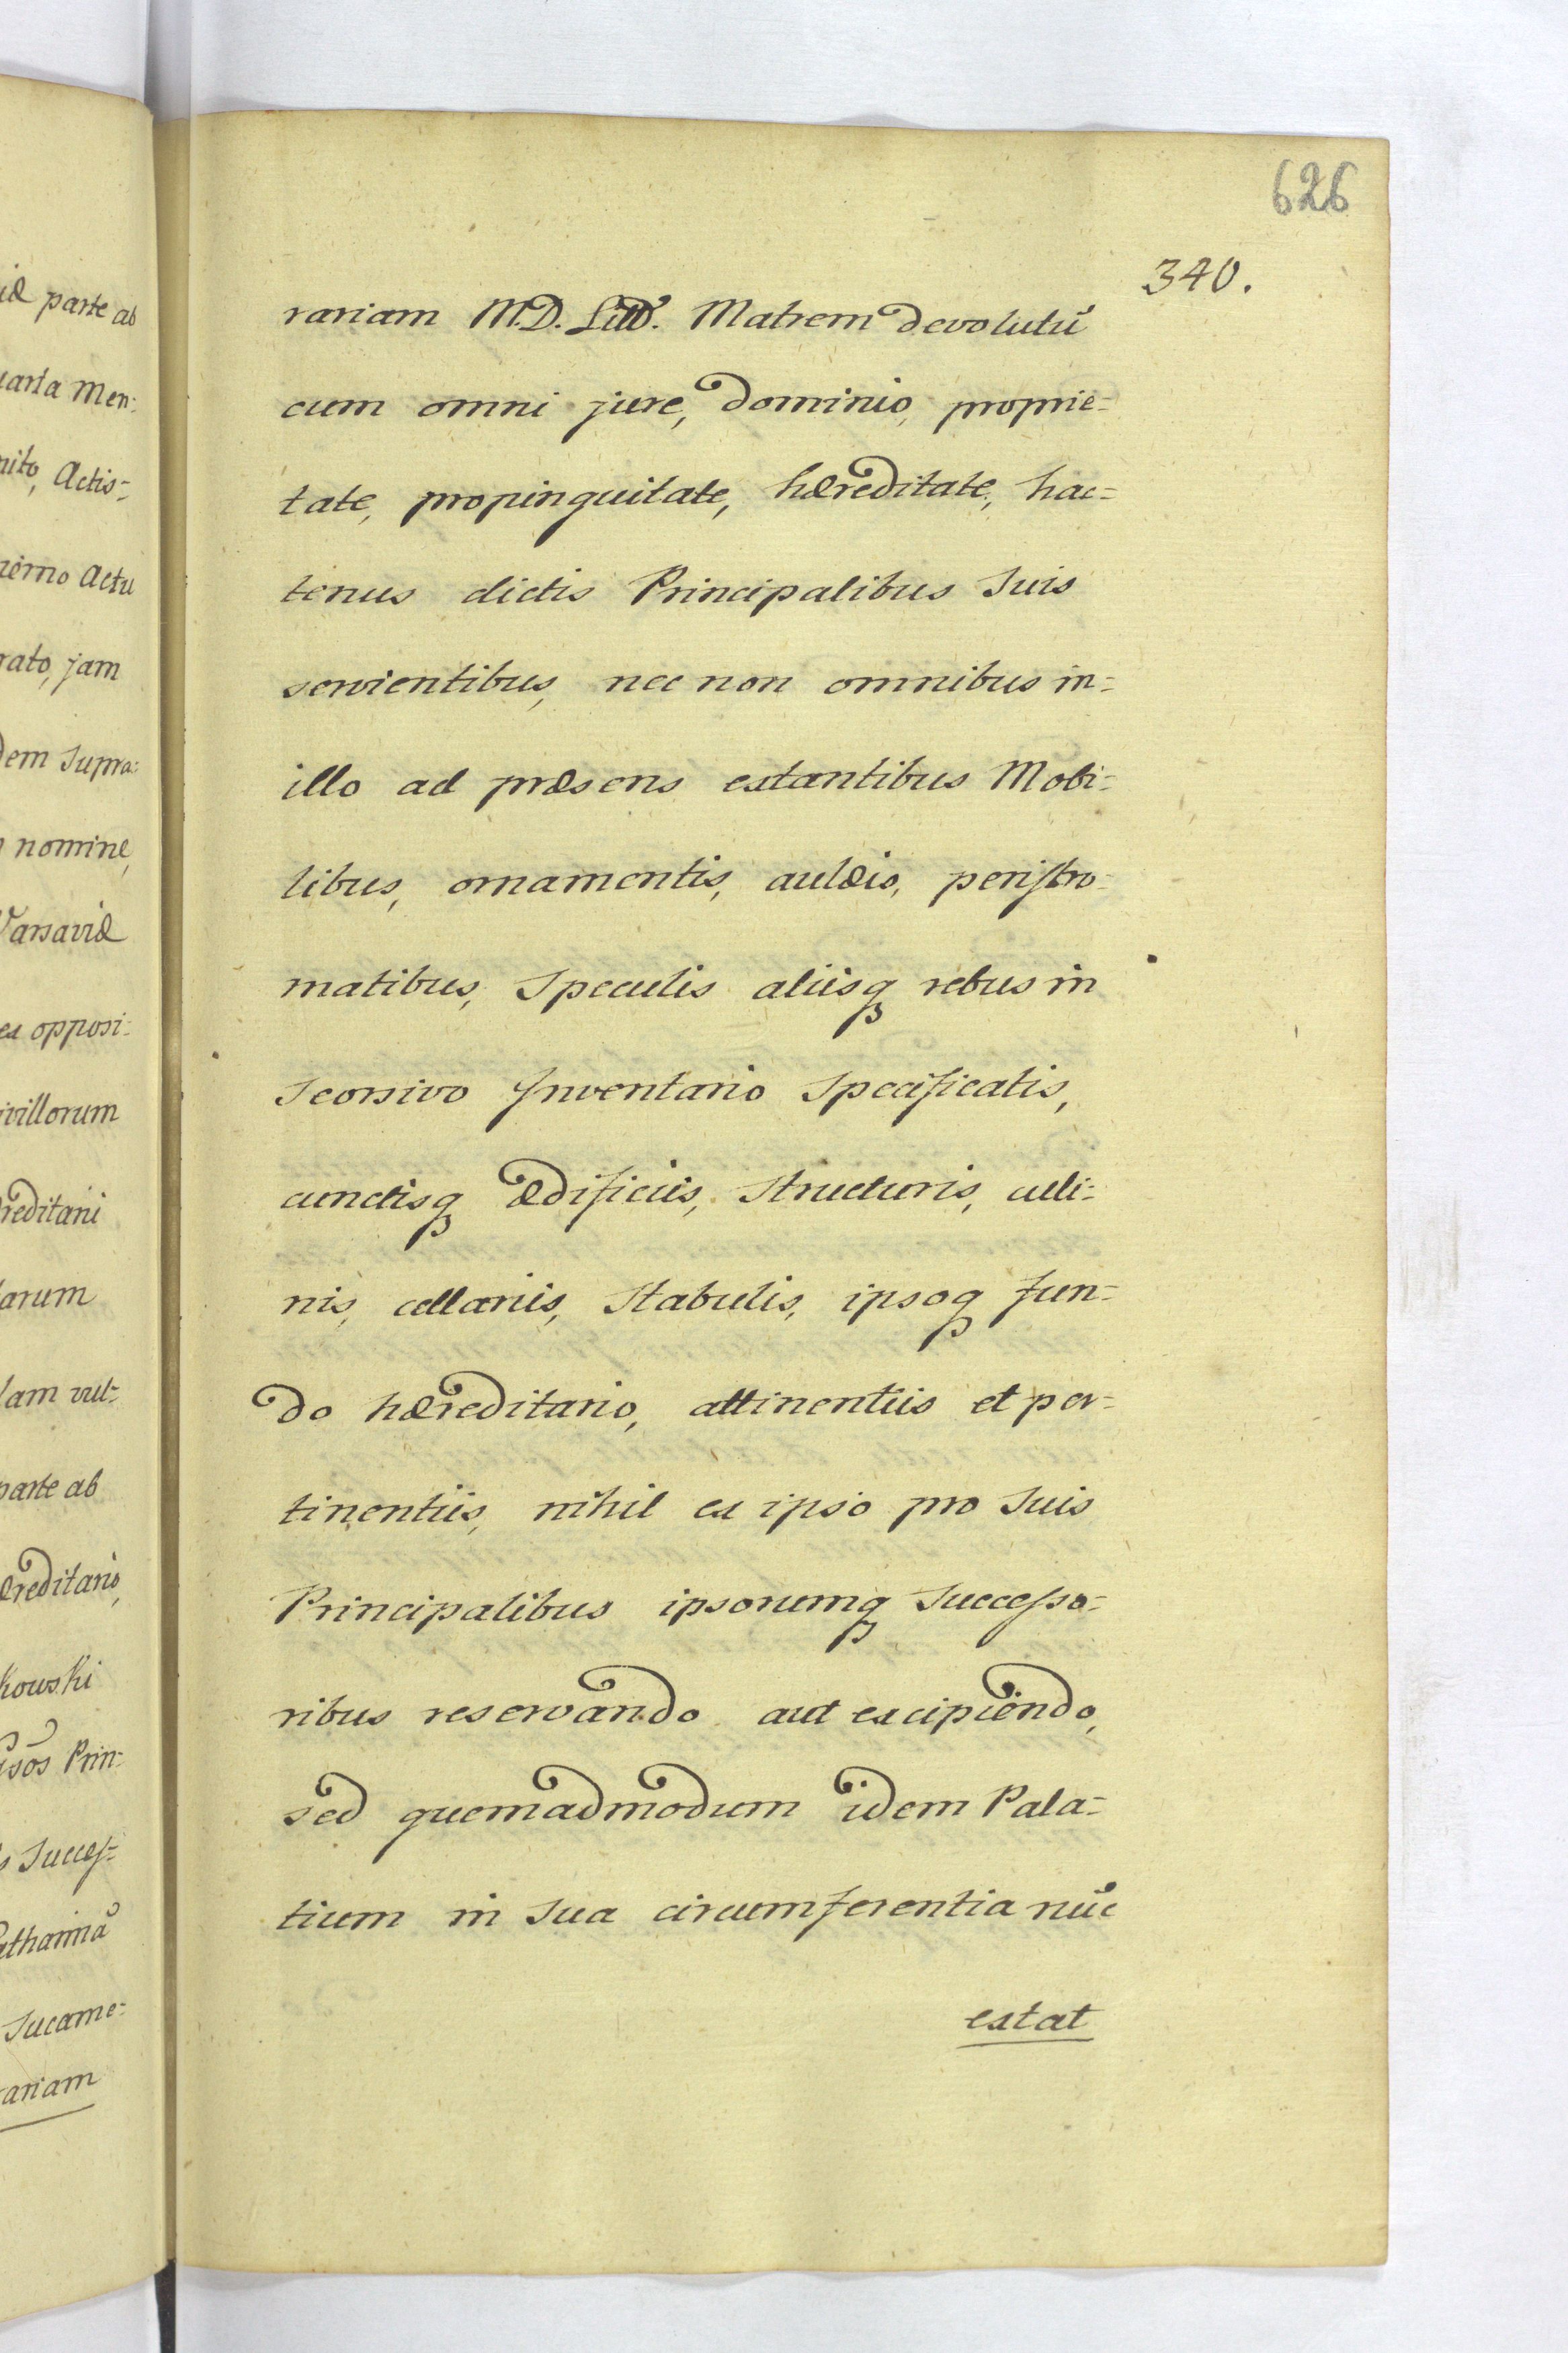 626
340.
rariam M.D. Litt. Matrem devolutū
cum omni jure, dominio, proprie=
tate, propinquitate, hæreditate, hac=
tenus dictis Principalibus Suis
servientibus, nec non omnibus in=
illo ad præsens extantibus Mobi=
libus, ornamentis, aulæis, peristro=
matibus, Speculis aliisq rebus in
Seorsivo Inventario Specificatis,
cunctisq ædificiis, Structuris, culi=
nis, cellariis, Stabulis, ipsoq fun=
do hæreditario, attinentiis et per=
tinentiis, nihil ex ipso pro Suis
Principalibus ipsorumq Successo=
ribus reservando aut excipiendo,
sed quemadmodum idem Pala=
tium in Sua circumferentia nūc
extat
iæ parte ab
uarta Men=
nito, Actis=
rato, jam
dem Supra=
nomine,
Varsaviæ
ex opposi=
ivillorum
reditarii
larum
lam vul=
parte ab
ereditario,
kowski
Prin=
Succes=
atharinā
Sucame=
rariam